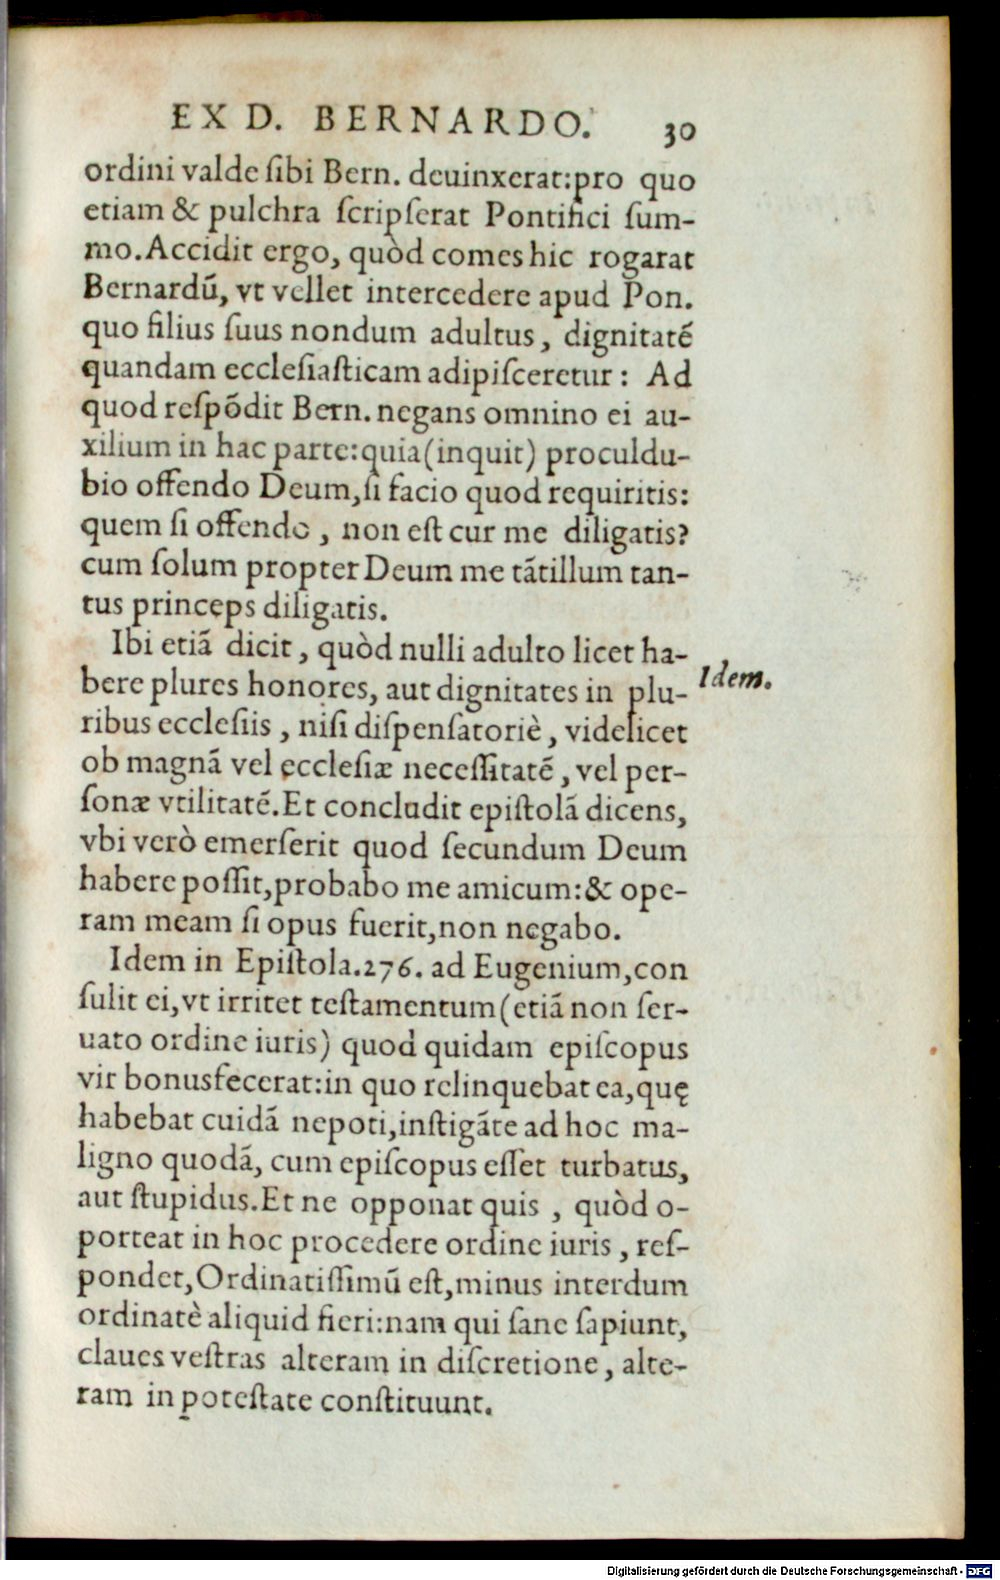 EX D. BERNARDO. 30
ordini valde ſibi Bern. deuinxerat:pro quo
etiam & pulchra ſcripſerat Pontifici ſum-
mo. Accidit ergo, quòd comes hic rogarat
Bernardũ, vt vellet intercedere apud Pon.
quo filius ſuus nondum adultus, dignitatẽ
quandam eccleſiaſticam adipiſceretur: Ad
quod reſpõdit Bern. negans omnino ei au-
xilium in hac parte:quia(inquit) proculdu-
bio offendo Deum,ſi facio quod requiritis:
quem ſi offendo, non eſt cur me diligatis?
cum ſolum propter Deum me tãtillum tan-
tus princeps diligatis.
Ibi etiã dicit, quòd nulli adulto licet ha-
bere plures honores, aut dignitates in plu-
Idem.
ribus eccleſiis, niſi diſpenſatoriè, videlicet
ob magnã vel eccleſiæ neceſſitatẽ, vel per-
ſonæ vtilitatẽ. Et concludit epiſtolã dicens,
vbi verò emerſerit quod ſecundum Deum
habere poſſit,probabo me amicum:& ope-
ram meam ſi opus fuerit,non negabo.
Idem in Epiſtola.276. ad Eugenium,con
ſulit ei,vt irritet teſtamentum(etiã non ſer-
uato ordine iuris) quod quidam epiſcopus
vir bonus fecerat:in quo relinquebat ea,quę
habebat cuidã nepoti,inſtigãte ad hoc ma-
ligno quodã, cum epiſcopus eſſet turbatus,
aut ſtupidus. Et ne opponat quis, quòd o-
porteat in hoc procedere ordine iuris, reſ-
pondet,Ordinatiſſimũ eſt,minus interdum
ordinatè aliquid fieri:nam qui ſane ſapiunt,
claues veſtras alteram in diſcretione, alte-
ram in poteſtate conſtituunt.
Digitalisierung gefördert durch die Deutsche Forschungsgemeinschaft - DFG